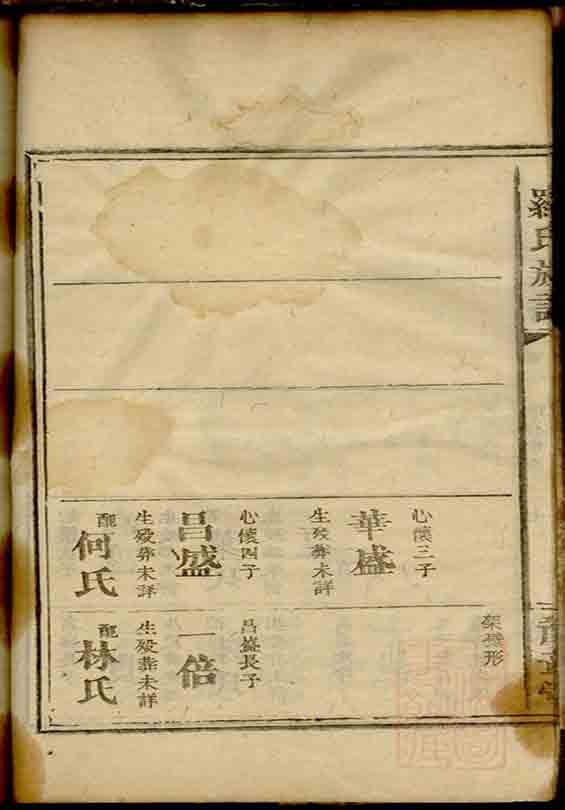 羅氏族譜
心懷三子
華盛
生歿葬未詳
心懷四子
昌盛
生歿葬未詳
配
何氏
形
昌盛長子
一倍
生歿葬未詳
配
林氏